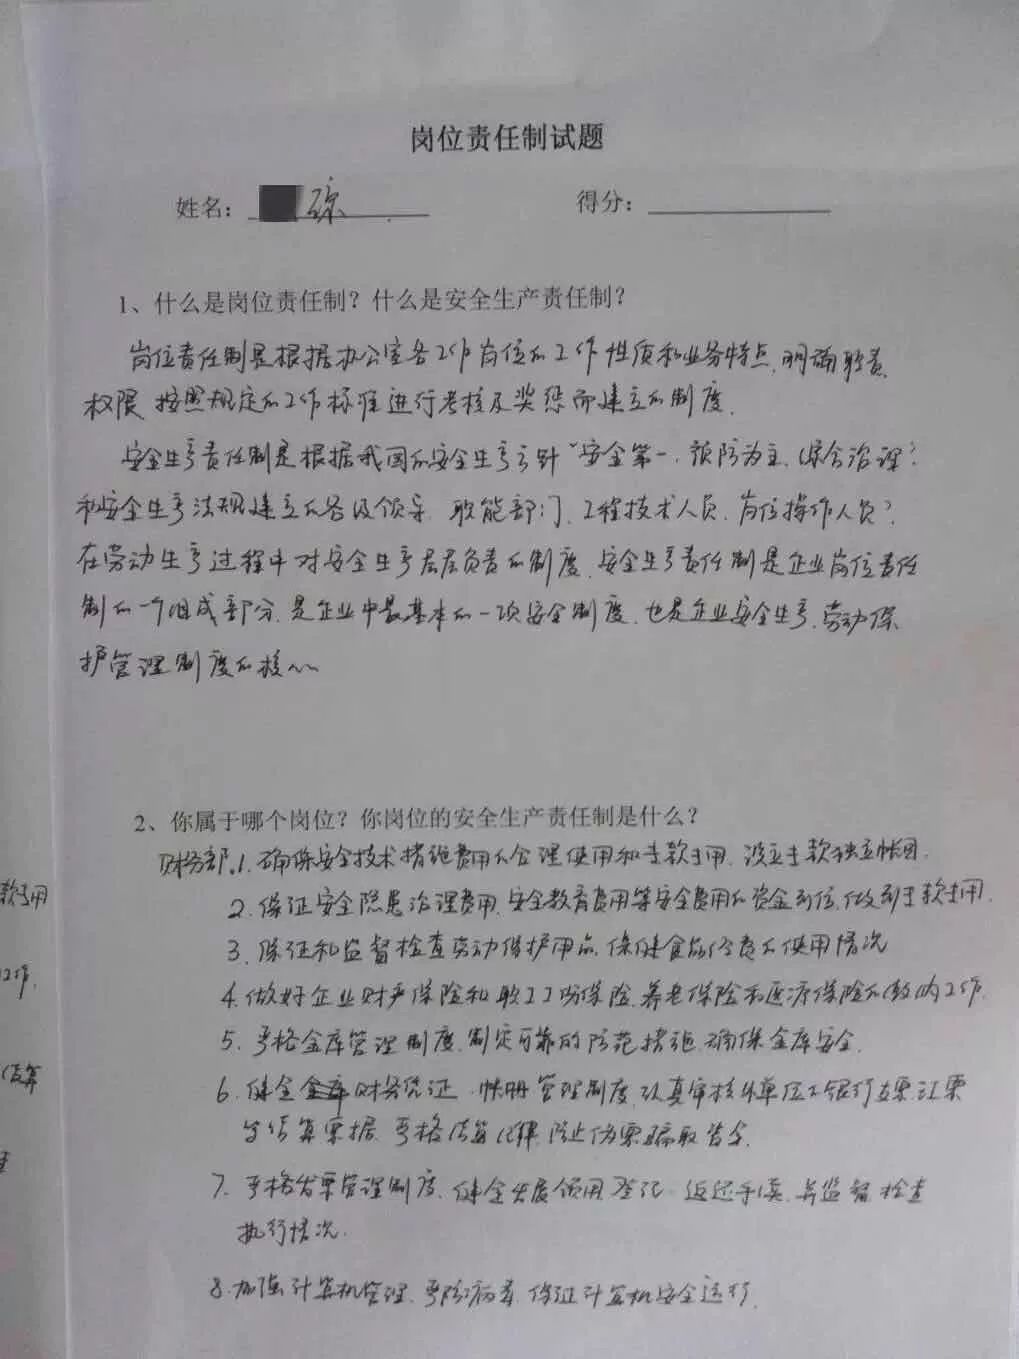 岗位责任制试题
姓名： 琼 得分：
1、什么是岗位责任制？什么是安全生产责任制？
岗位责任制是根据办公室各工作岗位的工作性质和业务特点，明确职责、
权限，按照规定的工作标准进行考核及奖惩而建立的制度。
安全生产责任制是根据我国的安全生产方针“安全第一，预防为主，综合治理”
和安全生产法规建立的各级领导、职能部门、工程技术人员、岗位操作人员
在劳动生产过程中对安全生产层层负责的制度。安全生产责任制是企业岗位责任
制的一个组成部分，是企业中最基本的一项安全制度，也是企业安全生产、劳动保
护管理制度的核心
2、你属于哪个岗位？你岗位的安全生产责任制是什么？
财务部.1.确保安全技术措施费用的合理使用和专款专用，设立专款独立帐
2.保证安全隐患治理费用、安全教育费用等安全费用的资金到位，做到专款专用.
3.保证和监督检查劳动保护用品、保健食品经费的使用情况
4.做好企业财产保险和职工工伤保险、养老保险和医疗保险的缴纳工作.
5.严格金库管理制度，制定可靠的防范措施，确保金库安全.
6.健全财务凭证、帐册管理制度，认真审核外单位的银行支票、汇票
等结算票据，严格结算纪律，防止伪票骗取资金.
7.严格发票管理制度，健全发票领用登记、返还手续，并监督检查
执行情况.
8.加强计算机管理，严防病毒，保证计算机安全运行.
款专用
工作.
结算